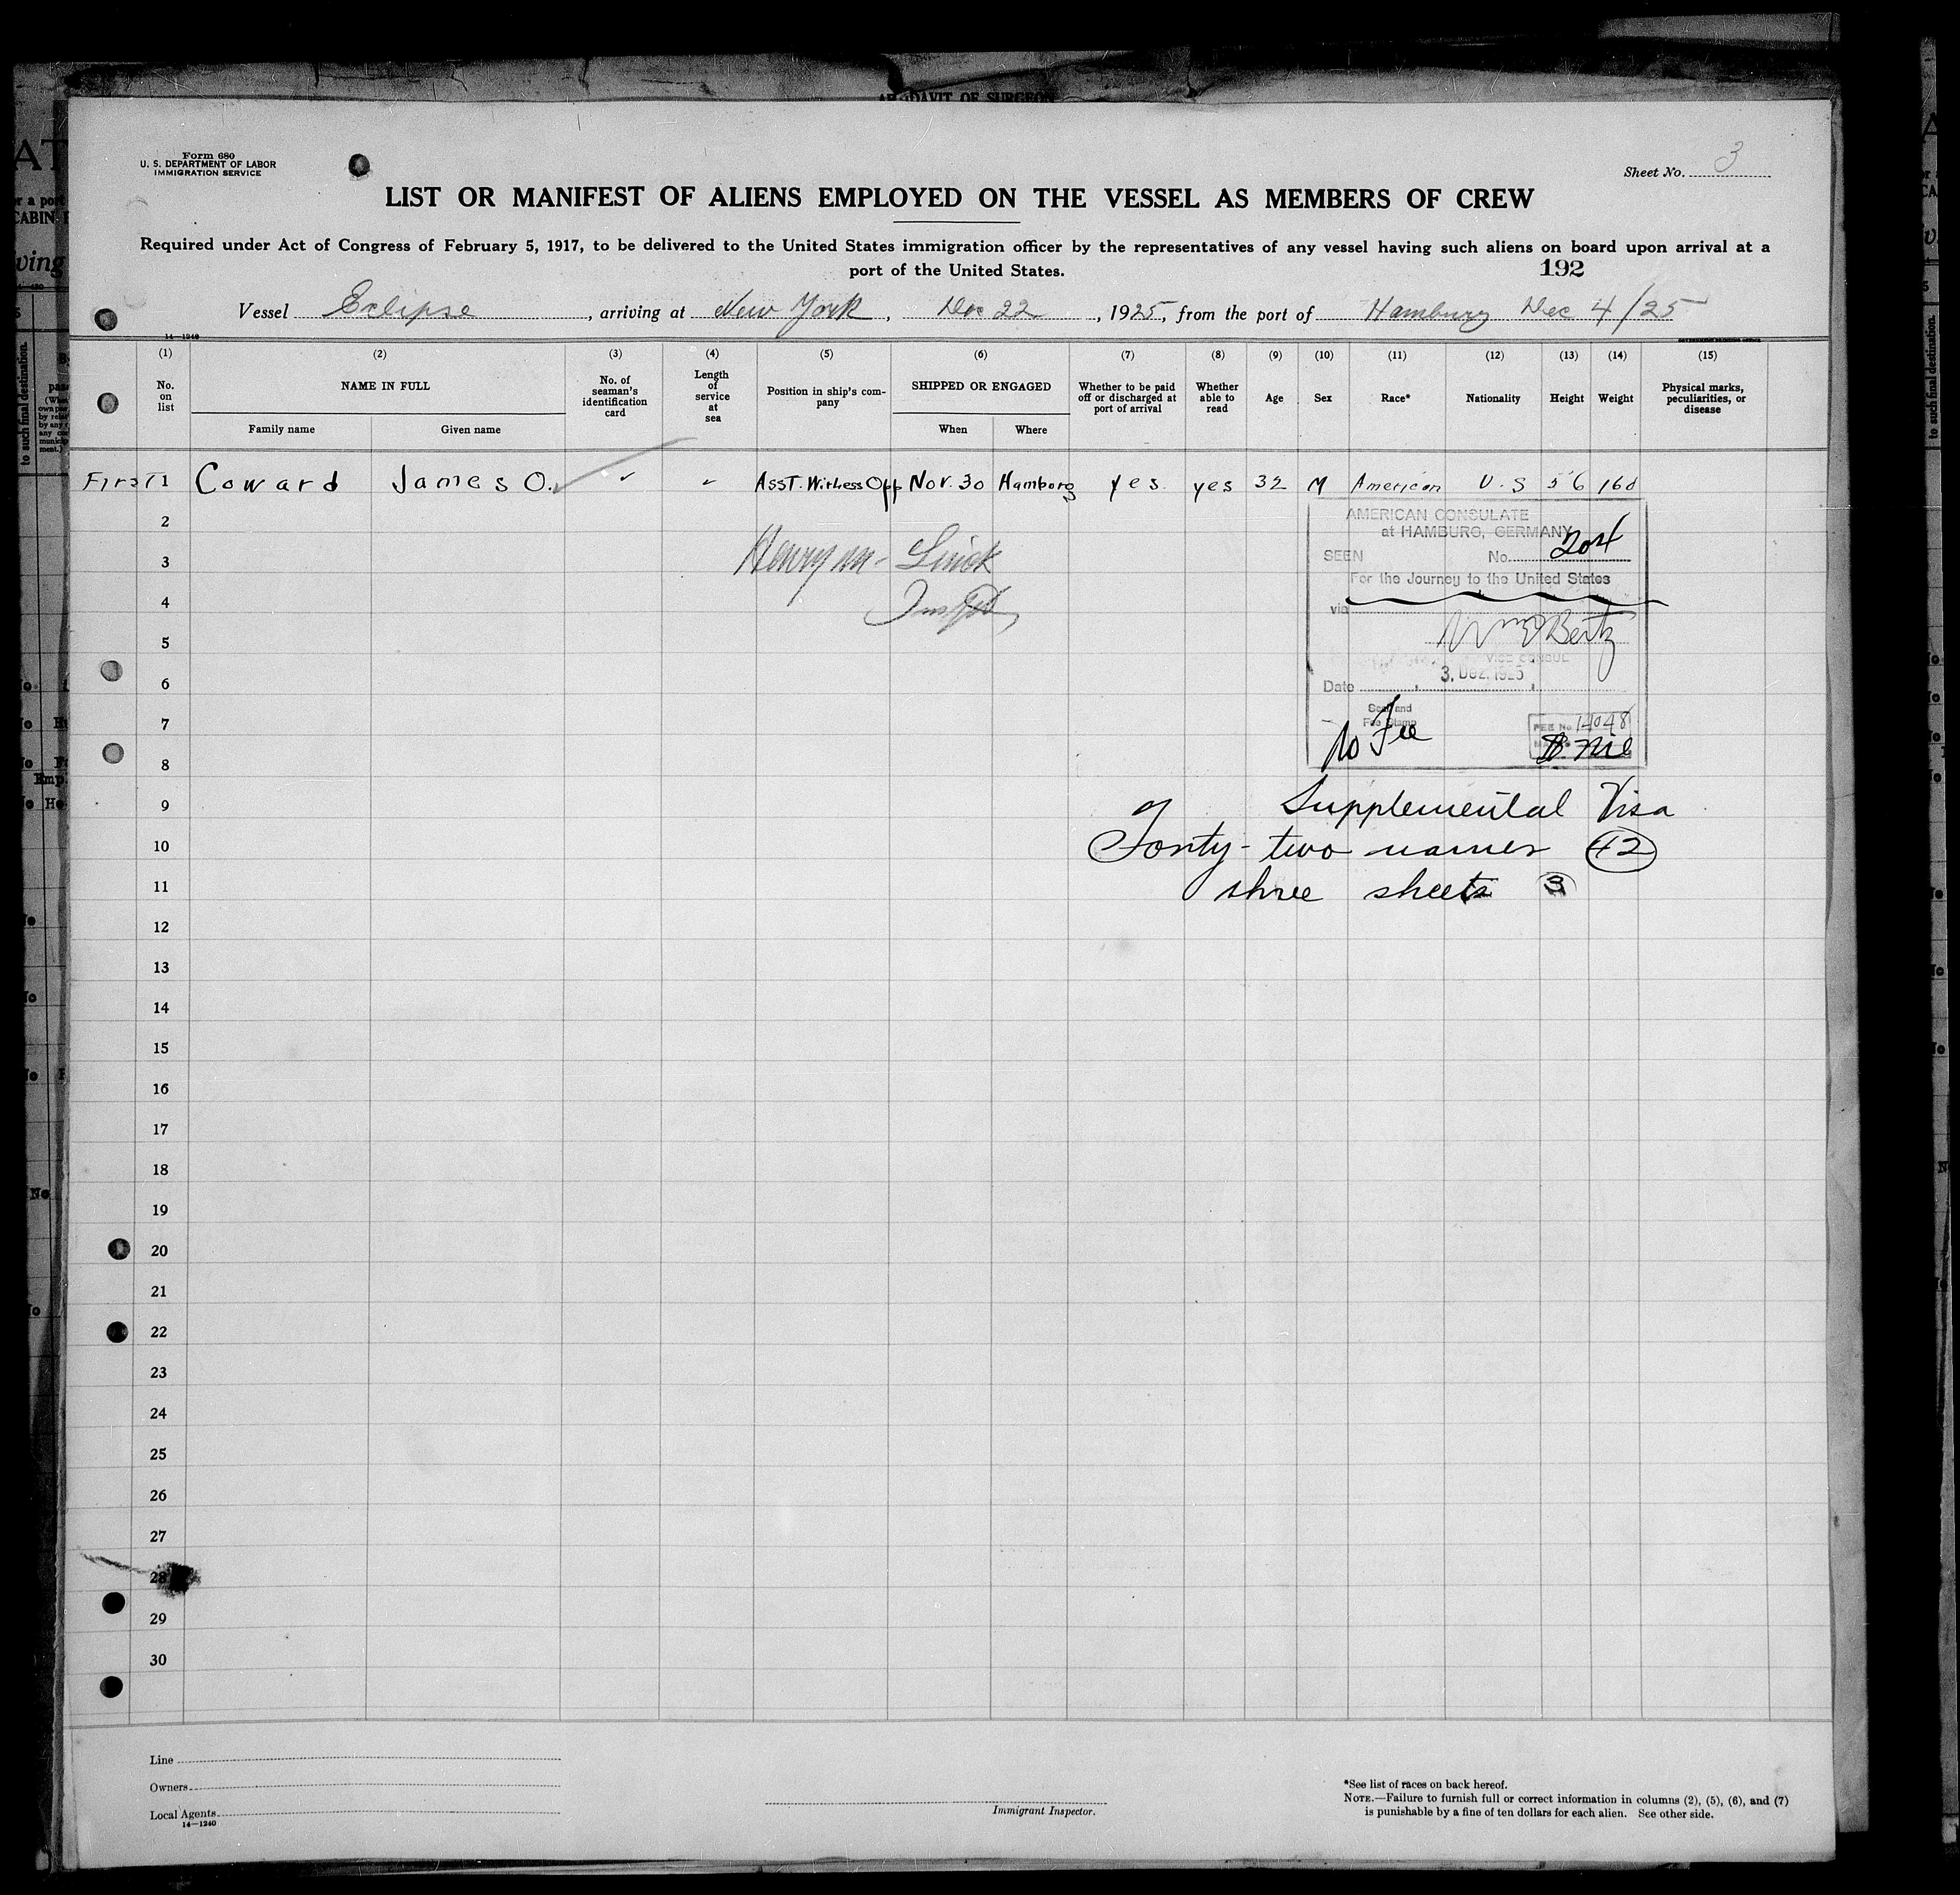 AFFIDAVIT OF SURGEON
Form 680
U. S. DEPARTMENT OF LABOR
IMMIGRATION SERVICE
Sheet No. 3
LIST OR MANIFEST OF ALIENS EMPLOYED ON THE VESSEL AS MEMBERS OF CREW
Required under Act of Congress of February 5, 1917, to be delivered to the United States immigration officer by the representatives of any vessel having such aliens on board upon arrival at a
port of the United States.
192
Vessel Eclipse, arriving at New York, Dec 22, 1925, from the port of Hamburg Dec 4/25
14—1240
(1) (2) (3) (4) (5) (6) (7) (8) (9) (10) (11) (12) (13) (14) (15)
No. on list NAME IN FULL Family name Given name No. of seaman's identification card Length of service at sea Position in ship's company SHIPPED OR ENGAGED When Where Whether to be paid off or discharged at port of arrival Whether able to read Age Sex Race* Nationality Height Weight Physical marks, peculiarities, or disease
First 1 Coward James O. ✓ Asst. Wirless Opp Nov. 30 Hamborg yes yes 32 M American U.S 5 6 160
2
3
4
5
6
7
8
9
10
11
12
13
14
15
16
17
18
19
20
21
22
23
24
25
26
27
28
29
30
Henry M.
AMERICAN CONSULATE
at HAMBURG, GERMANY
SEEN No. 204
For the Journey to the United States
via
Bertz
VICE CONSUL
Date 3. Dez. 1925
Seal and
Fee Stamp
No Fee
FEE No 14048
Nil
Supplemental Visa
Forty-two names 42
three sheets 3
Line
Owners
Local Agents
14—1240
Immigrant Inspector.
*See list of races on back hereof.
NOTE.—Failure to furnish full or correct information in columns (2), (5), (6), and (7)
is punishable by a fine of ten dollars for each alien. See other side.